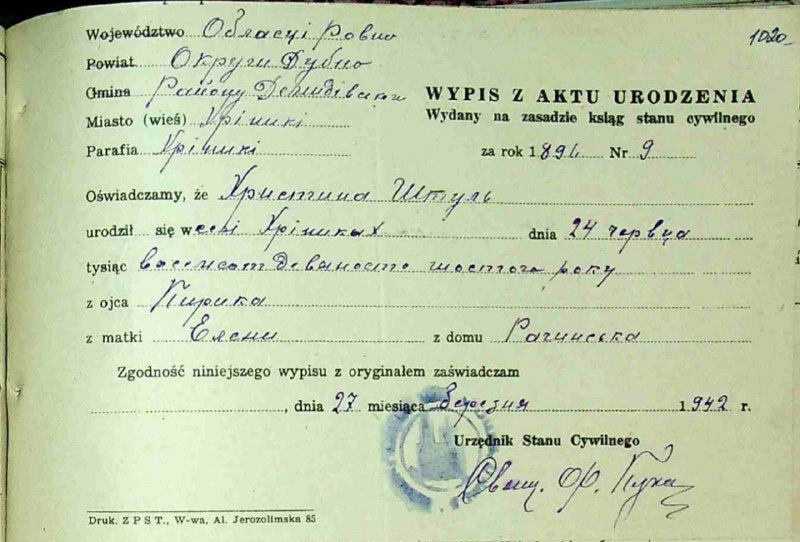 Województwo Обласці Ровно
1020
Powiat Округи Дубно
Gmina Району Демидівська
WYPIS Z AKTU URODZENIA
Miasto (wieś) Хрінники
Wydany na zasadzie ksiąg stanu cywilnego
Parafia Хрінники
za rok 1896 Nr 9
Oświadczamy, że Христина Штуль
urodził się w селі Хрінниках dnia 24 червця
tysiąc восемсот деваносто шостого року
z ojca Кирика
z matki Елени z domu Рачинська
Zgodność niniejszego wypisu z oryginałem zaświadczam
, dnia 27 miesiąca березня 1942 r.
Urzędnik Stanu Cywilnego
Свящ. Ф.
Druk. Z P S T., W-wa, Al. Jerozolimska 85